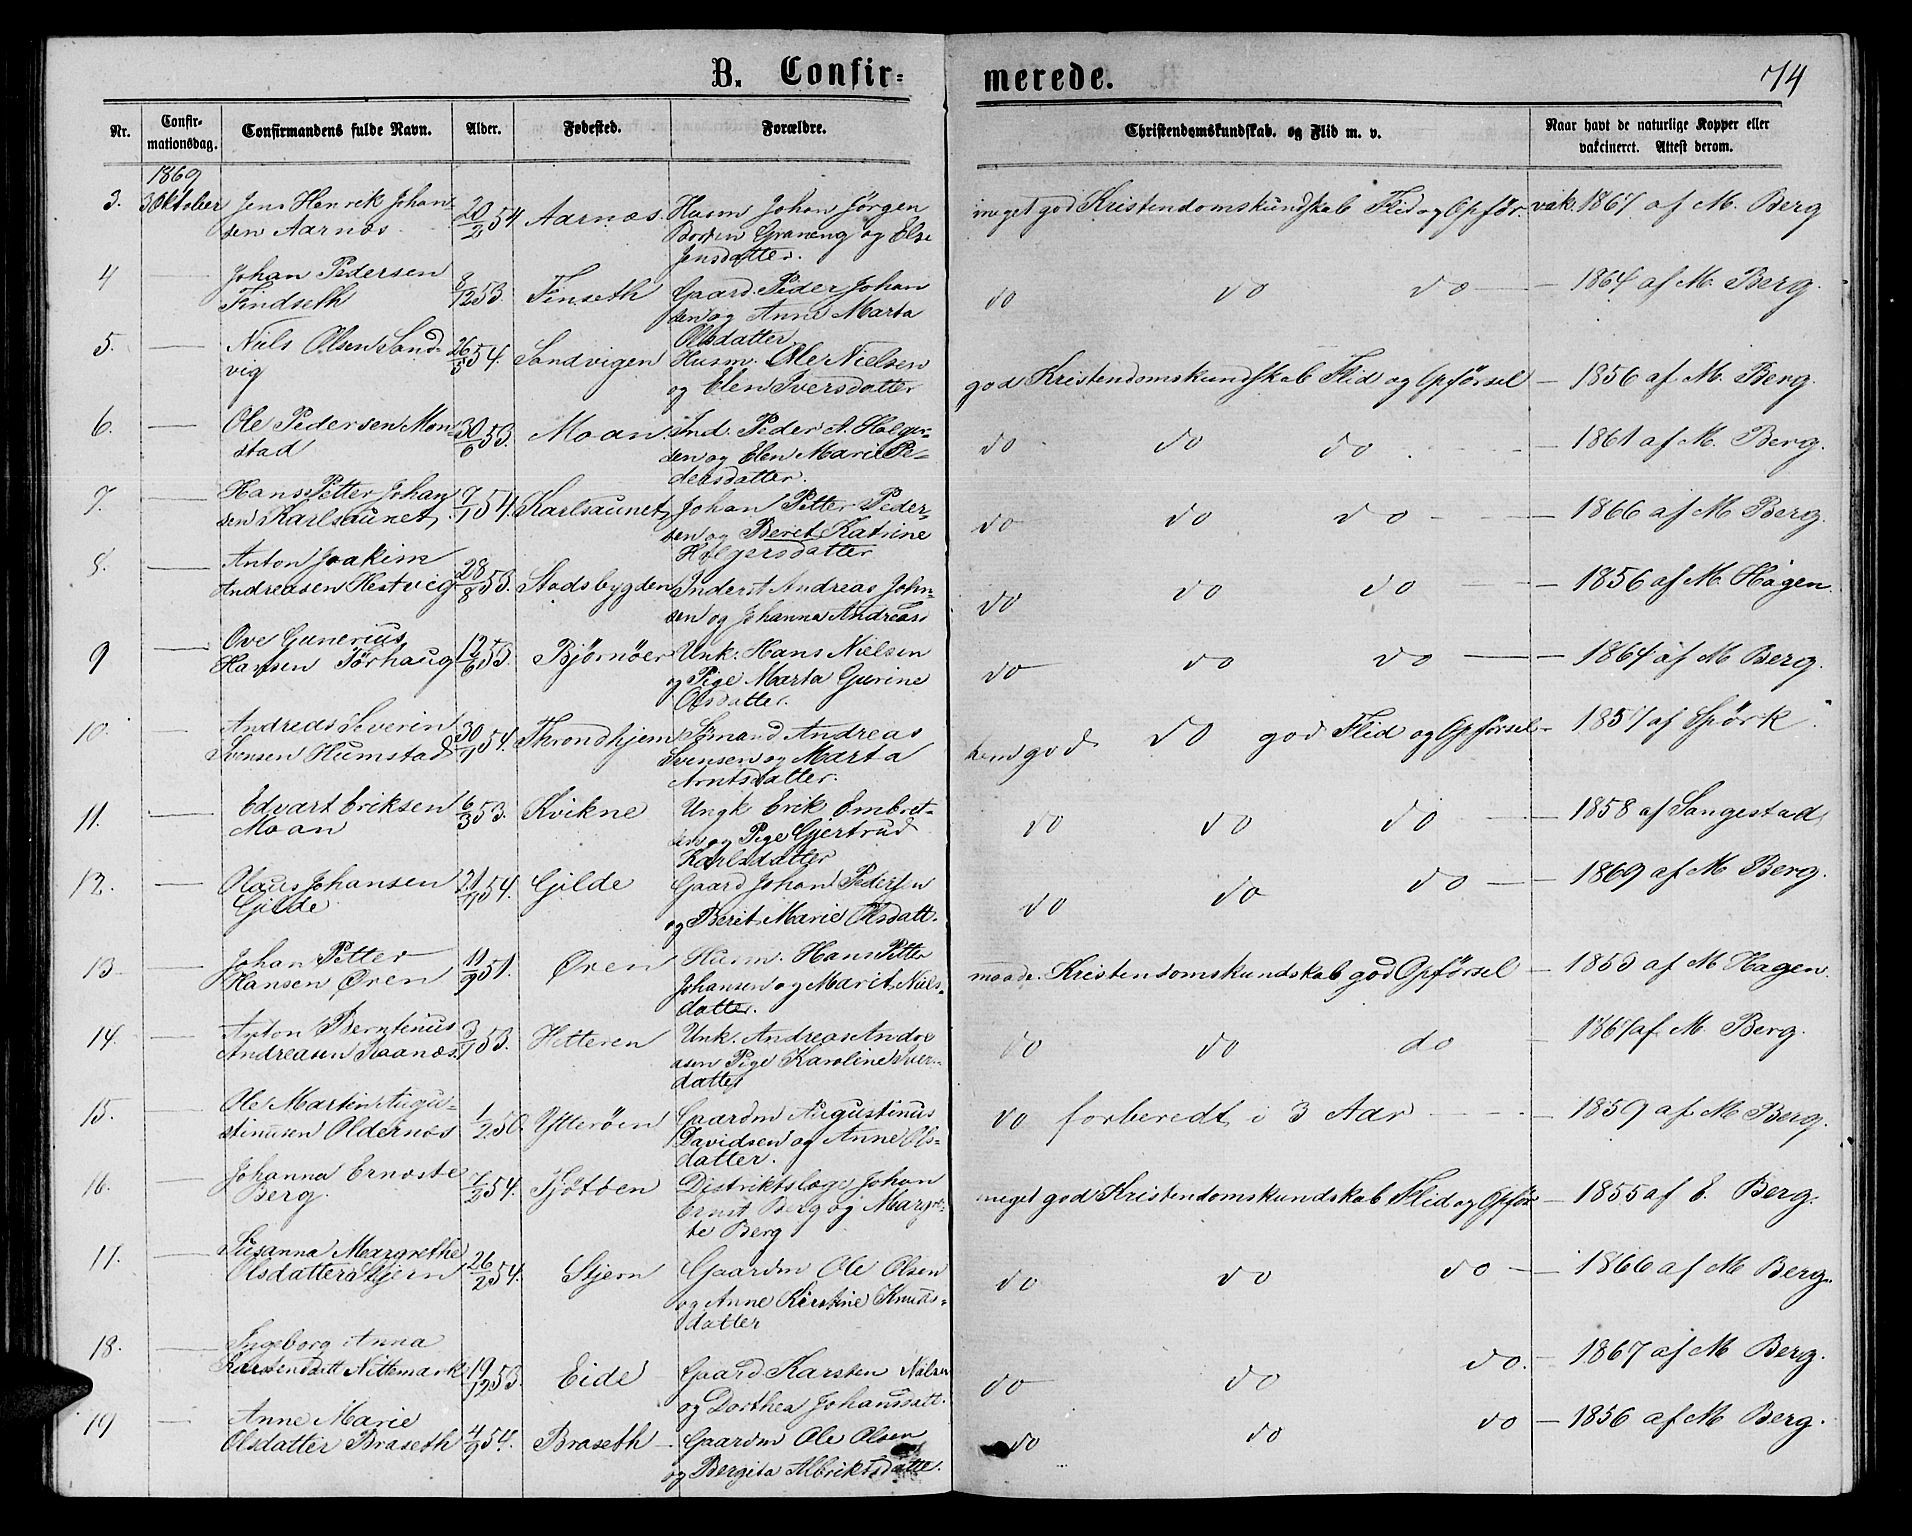 B. Confir-
merede.
74
Nr.
Confir-
mationsdag.
Confirmandens fulde Navn.
Alder.
Fødested.
Forældre.
Christendomskundskab. og Flid m. v.
Naar havt de naturlige Kopper eller
vakcineret. Attest derom.
1869
3. 3 Oktober Jens Henrik Johan- 20/2 54 Aarnæs. Husm Johan Jørgen meget god Kristendomskundskab Flid og Opfør. vak. 1867 af M. Berg
sen Aarnæs. Graneng og Else
Jensdatter.
4 — Johan Pedersen 8/12 53. Finseth Gaard. Peder Johan do do do — 1864 af M. Berg.
Findseth sen og Anne Marta
Olsdatter
5. — Niels Olsen Sand- 26/5 54. Sandvigen Husm. Ole Nielsen god Kristendomskundskab Flid og Opførsel — 1856 af M. Berg.
vig og Elen Iversdatter
6. — Ole Pedersen Mon- 30/6 53. Moan Ind. Peder A. Holger- do do do — 1861 af M. Berg.
stad sen og Elen Marie Pe-
dersdatter.
7. — Hans Petter Johan 7/1 54. Karlsaunet, Johan Petter Peder- do do do — 1866 af M Berg.
sen Karlsaunet. sen og Beret Katrine
Holgersdatter
8. — Anton Joakim
Andreasen Hestvig 28/8 53. Stadsbygden Inderst Andreas John- do do do — 1856 af M. Hagen.
sen og Johanna Andreas
9 — Ove Gunerius
Hansen Tørhaug 12/6 53. Bjørnøer Unk. Hans Nielsen do do do — 1864 af M Berg.
og Pige Marta Gurine
Olsdatter.
10. — Andreas Severin 30/1 54. Throndhjem Sømand Andreas do god Flid og Opførsel — 1857 af Spørk
Svensen Humstad Svensen og Marta
Arntsdatter.
11. — Edvart Eriksen 6/3 53. Kvikne Ungk Erik Embret- do do do — 1858 af Sangestad
Moan sen og Pige Gjertrud
Karlsdatter
12. — Olaus Johansen 21/1 54. Gilde Gaard Johan Pedersen do do do — 1869 af M Berg.
Gilde og Berit Marie Olsdatt.
13 — Johan Petter 11/9 51. Øren Husm. Hans Petter maade. Kristendomskundskab god Opførsel — 1853 af M Hagen.
Hansen Øren Johansen og Marit Niels-
datter.
14. — Anton Berntinus 3/1 53. Hitteren Unk. Andreas Andre do do do — 1867 af M. Berg.
Andreasen Raanæs. asen Pige Karoline Iver-
datter
15. Ole Martin Augu- 1/2 50. Ytterøen Gaardm Augustinus do forberedt i 3 Aar — 1859 af M Berg.
stinusen Oldernæs Davidsen og Anne Ols-
datter.
16. — Johanna Ernæste 7/2 54. Tjøtøen Distriktslæge Johan meget god Kristendomskundskab Flid og Opfør — 1855 af E. Berg.
Berg. Ernst Berg og Margre-
te Berg
17. — Susanna Margrethe
Olsdatter Stjern 26/2 54. Stjern Gaardm Ole Olsen do do do — 1866 af M Berg.
og Anne Kirstine Knuds-
datter
18. — Ingeborg Anna
Karstensdatt Nittemark 19/12 53. Eide Gaard Karsten Nilsen do do do. — 1867 af M Berg.
og Dorthea Johansdatt.
19 — Anne Marie
Olsdatter Braseth 4/9 54. Braseth Gaardm Ole Olsen do do do — 1856 af M Berg.
og Bergita Albriktsdatte.